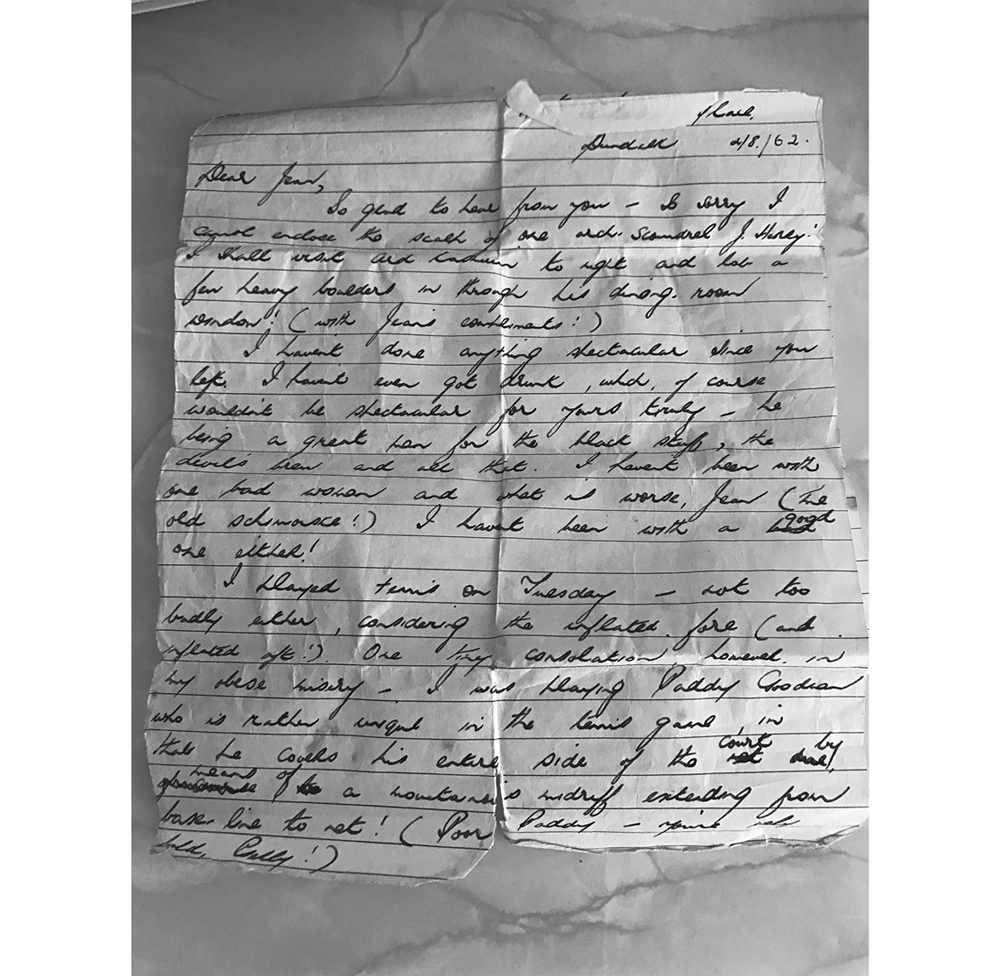 Place,
Dundalk 2/8/62.
Dear Jean,
So glad to hear from you – so sorry I
cannot enclose the scalp of one arch-scoundrel J. Harvey!
I shall visit to night and lob a
few heavy boulders in through his dining-room
window! (with Jean's compliments!)
I haven't done anything spectacular since you
left. I haven't even got drunk, which, of course
wouldn't be spectacular for yours truly – he
being a great man for the black stuff, the
devil's brew and all that. I haven't been with
one bad woman and what is worse, Jean (the
old schmorske!) I haven't been with a good
one either!
I played tennis on Tuesday – not too
badly either, considering the inflated fore (and
inflated aft!). One tiny consolation however, in
my obese misery – I was playing Paddy Goodman
who is rather unique in the tennis game, in
that he covers his entire side of the court by
means of a mountainous midriff extending from
base-line to net! (Poor Paddy – you're not
bald, Cully!)